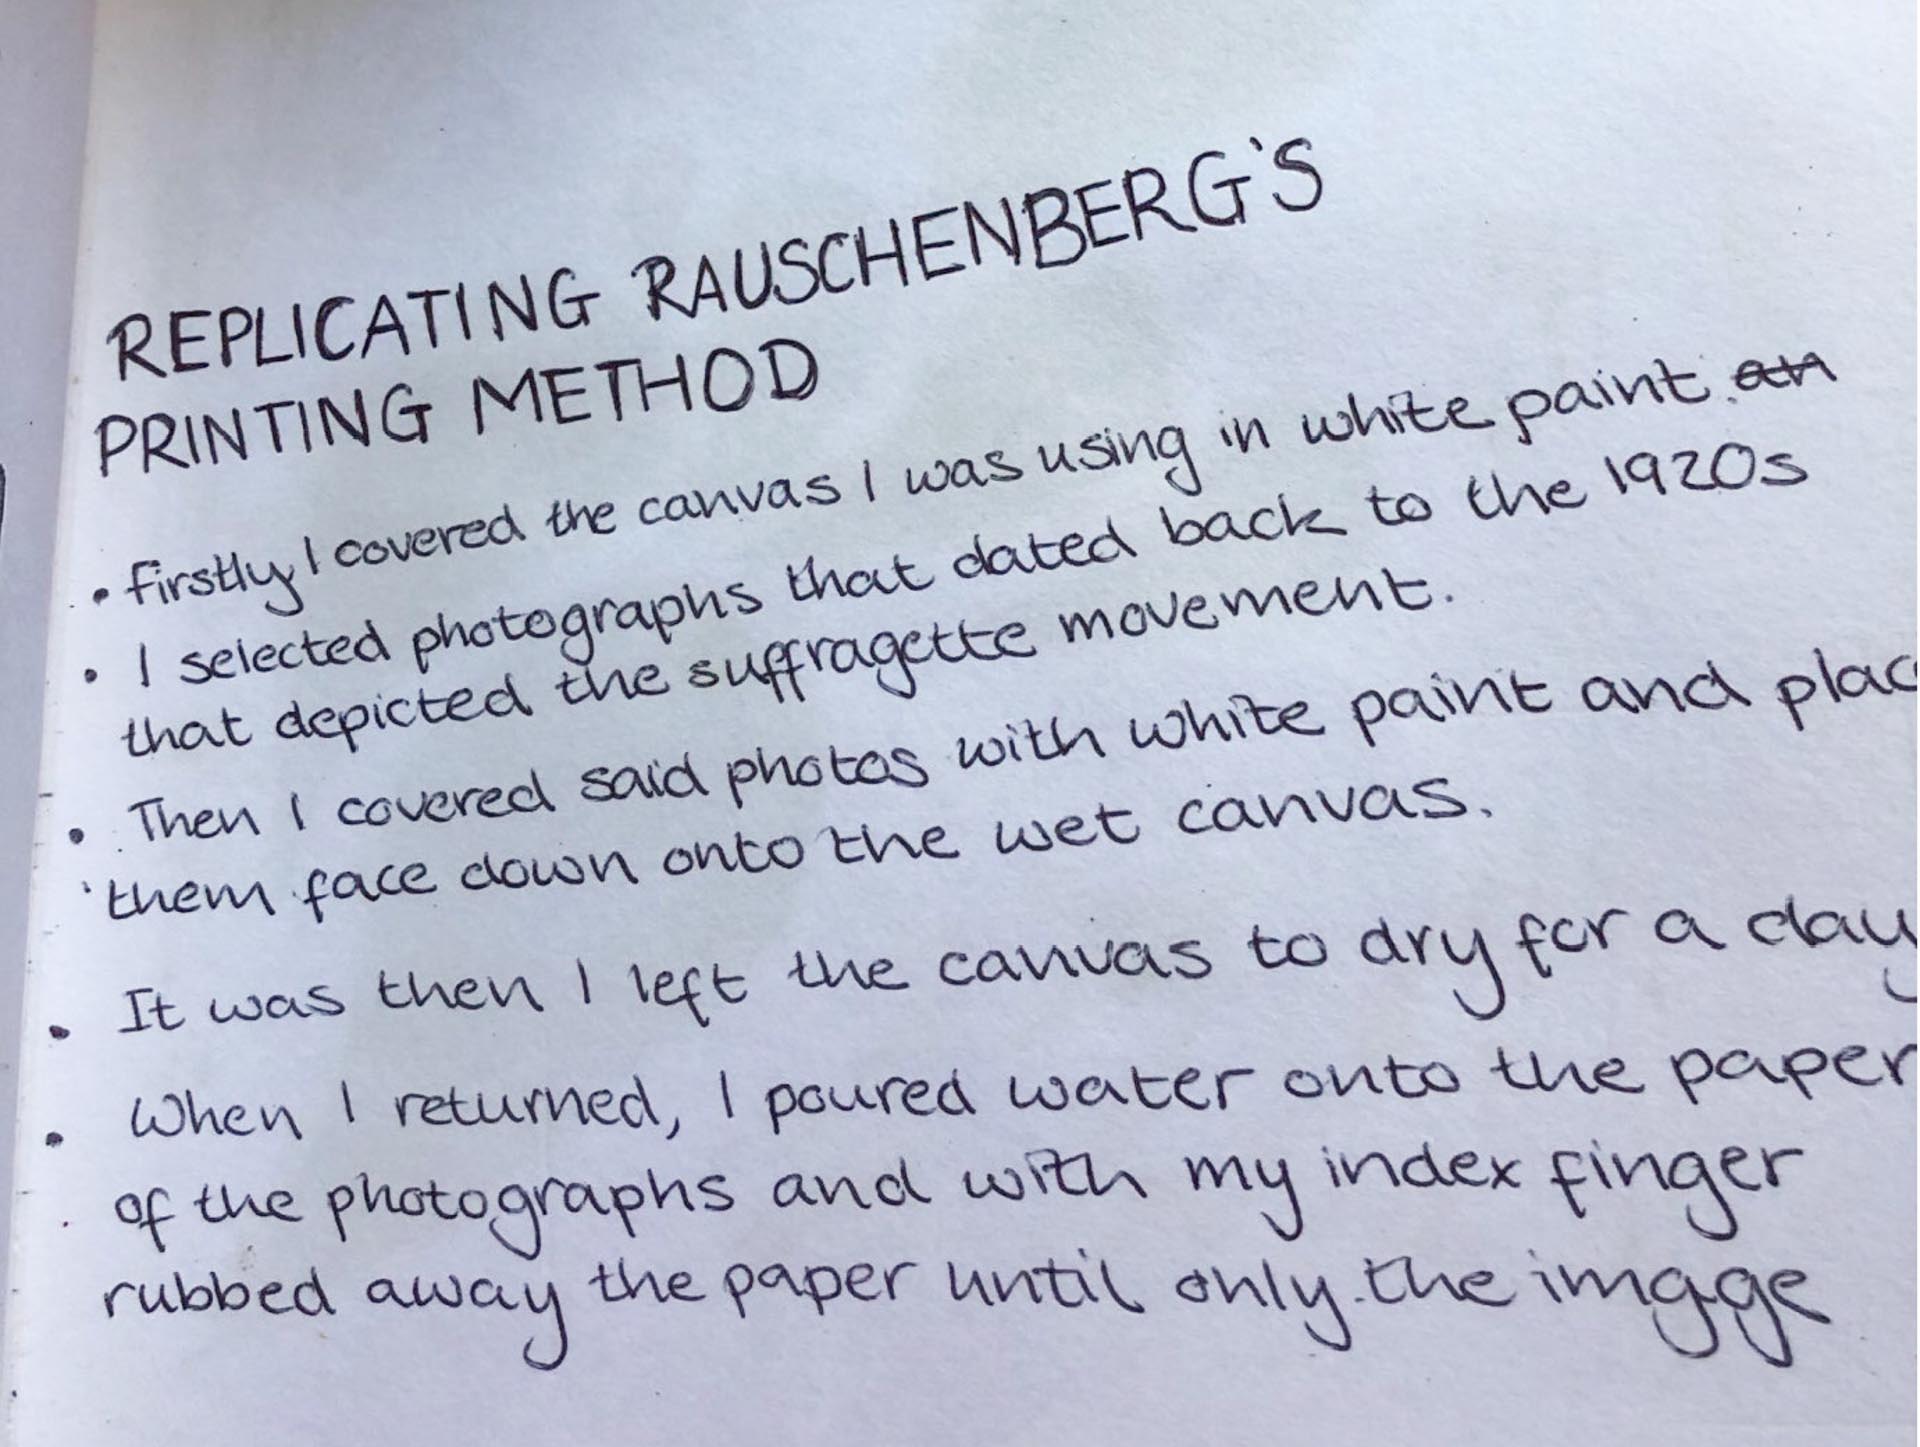 REPLICATING RAUSCHENBERG'S
PRINTING METHOD
• firstly, I covered the canvas I was using in white paint. an
• I selected photographs that dated back to the 1920s
that depicted the suffragette movement.
• Then I covered said photos with white paint and plac
them face down onto the wet canvas.
• It was then I left the canvas to dry for a day
• When I returned, I poured water onto the paper
of the photographs and with my index finger
rubbed away the paper until only the imgge